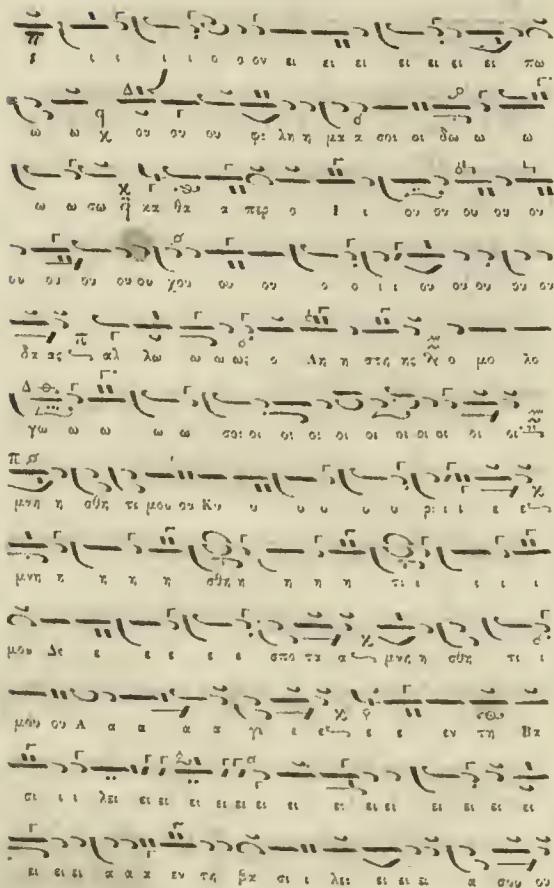 ε ι ι ι ι ο ο ον ει ει ει ει ει ει ει πω
ω ω ου ου ου φι λη η μα α σοι οι δω ω ω
ω ω σω κα θα α περ ο Ι ι ου ου ου ου ου
ου ου ου ου ου χου ου ου ο ο ι ι ου ου ου ου ου
δα ας αλ λω ω ω ως ο Λη η στη ης ο μο λο
γω ω ω ω ω σοι οι οι οι οι οι οι οι οι οι οι
μνη η σθη τι μου ου Κυ υ υ υ υ υ ρι ι ε ε
μνη η η η η σθη η η η η τι ι ι ι ι
μου Δε ε ε ε ε σπο τα α μνη η σθη τι ι
μου ου Α α α α γι ε ε ε ε εν τη Βα
σι ι ι λει ει ει ει ει ει ει ει ει ει ει ει ει ει
ει ει ει α α α εν τη βα σι ι λει ει ει ει α σου ου